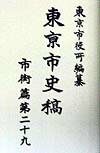 東京市役所編纂
東京市史稿
市街篇第二十九